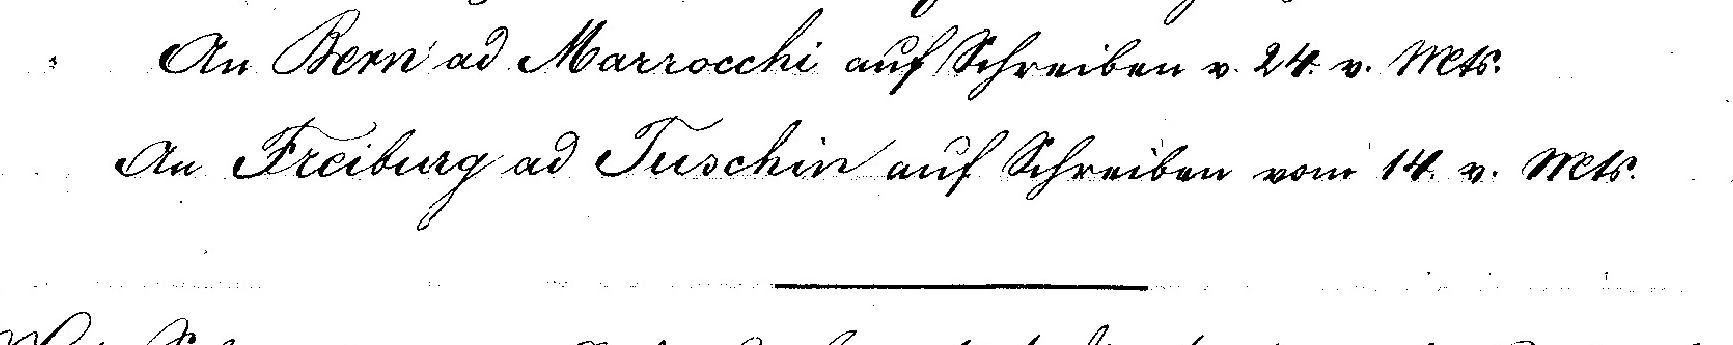 An Bern ad Marrocchi auf Schreiben v. 24. v. Mts.
An Freiburg ad Tuschin auf Schreiben vom 14. v. Mts.